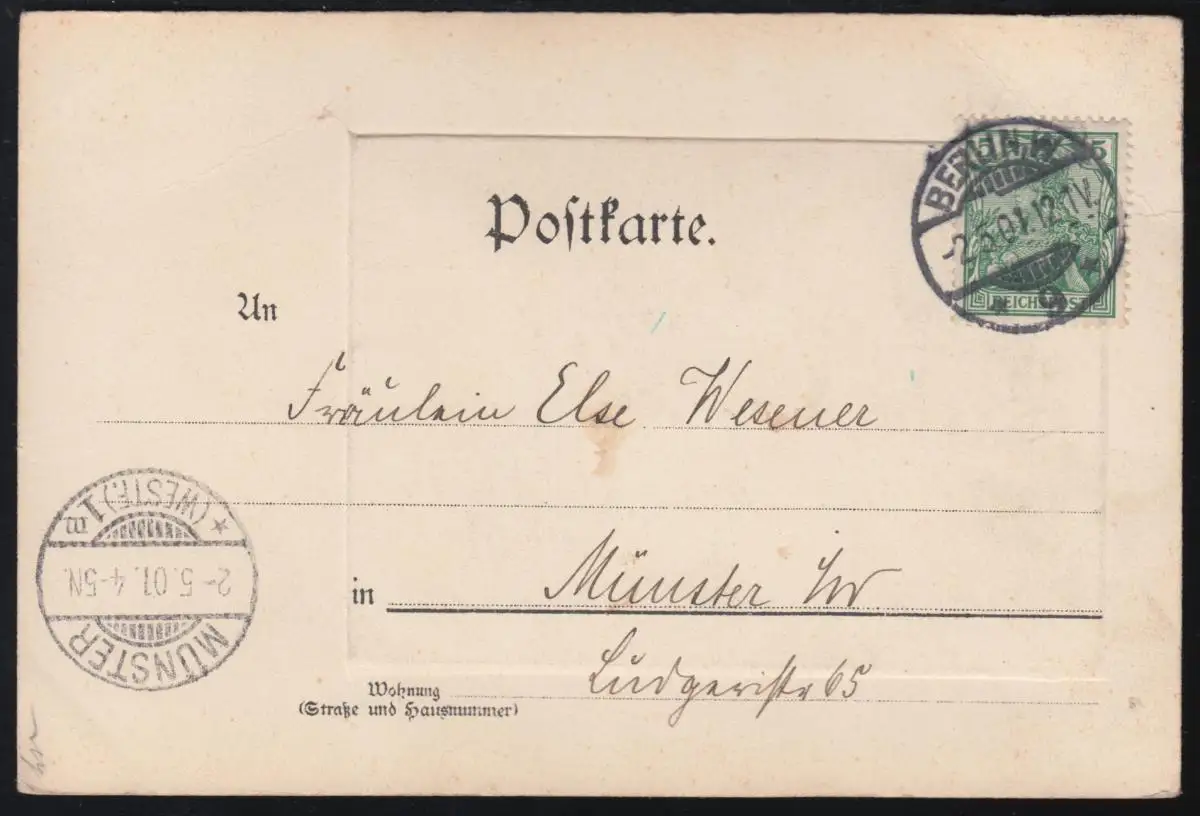 Postkarte.
BERLIN, W.
-2.5.01.12-1V.
* 9 *
5
REICHSPOST
An
Fräulein Else Wesener
in Münster i/W
Ludgeristr 65
Wohnung
(Straße und Hausnummer)
MÜNSTER
2-5.01. 4-5N.
* (WESTF.) 1